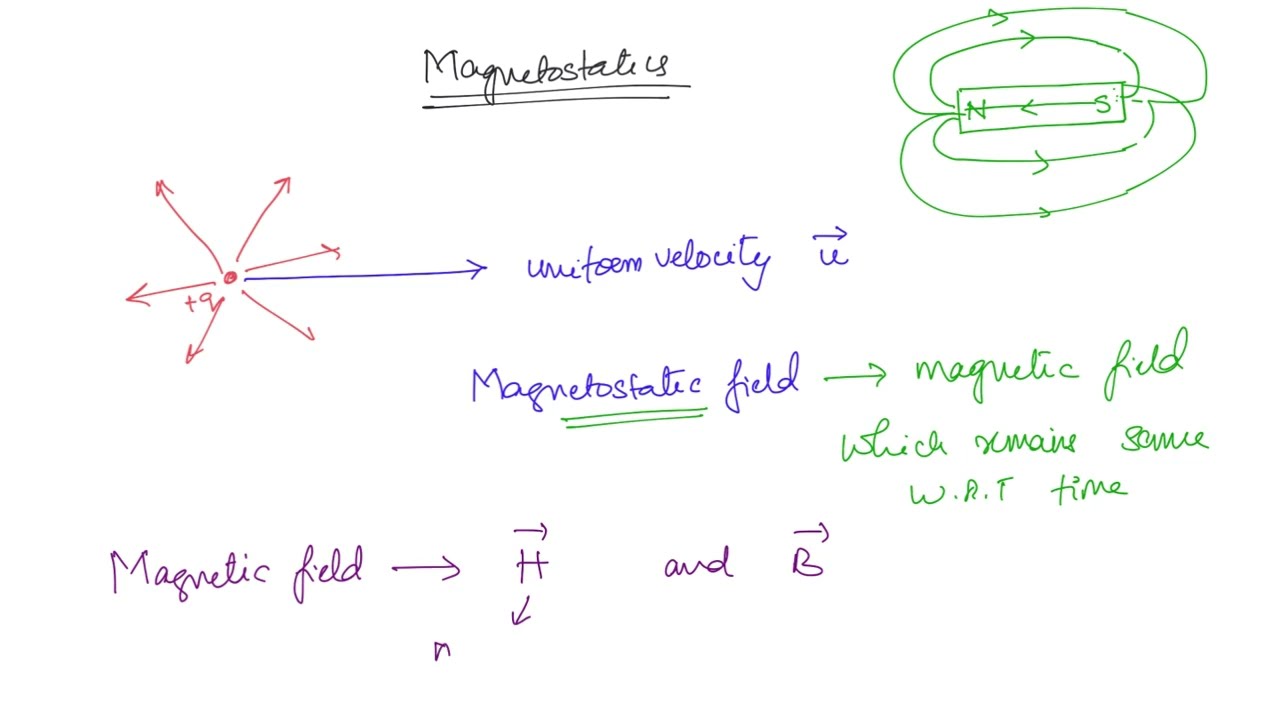 Magnetostatics
N S
+q
uniform velocity u
Magnetostatic field → magnetic field
which remains same
W.R.T time
Magnetic field → H and B
n